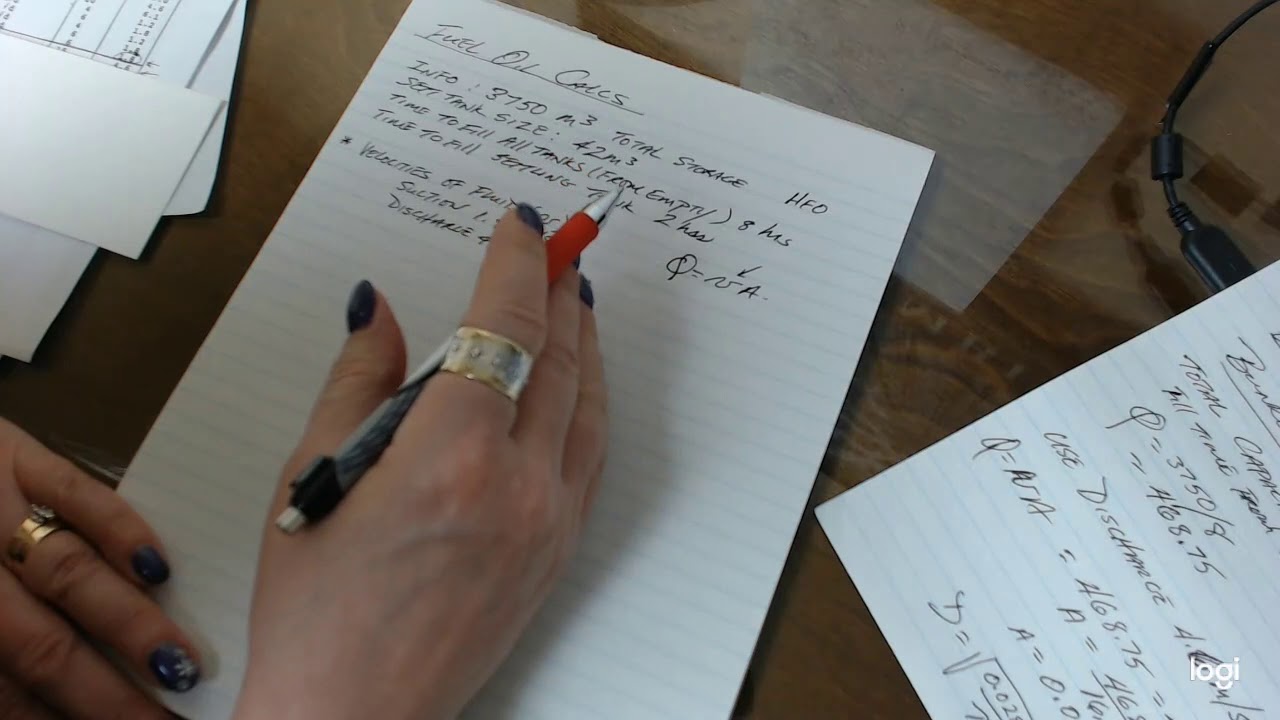 FUEL OIL CALCS
INFO: 3750 M3 TOTAL STORAGE HFO
SET TANK SIZE: 42M3
TIME TO FILL ALL TANKS (FROM EMPTY) 8 hrs
TIME TO FILL SETTLING 2 hrs
* VELOCITIES OF
SUCTION 1.
DISCHARGE
Q=vA.
TOTAL
Fill TIME FROM
Q = 3750/8
= 468.75
USE DISCHARGE
Q=vA = 468.75 =
A =
A = 0.0
logi